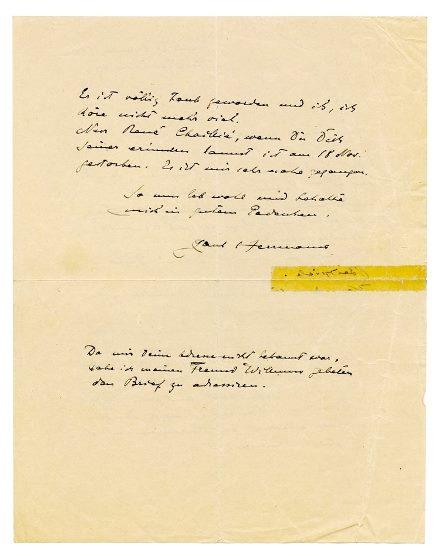 Er ist völlig taub geworden und ich, ich
höre nicht mehr viel.
René, wenn Du Dich
seiner erinnern kannst ist am 18 Nov.
gestorben. Es ist mir sehr nahe gegangen.
So nun leb wohl und behalte
mich in gutem Gedenken.
Paul Hermanns
Da mir Deine Adresse nicht bekannt war,
habe ich meinen Freund gebeten
den Brief zu adressieren.